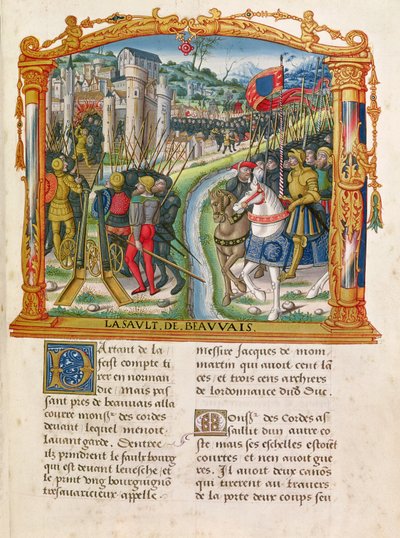 LASAULT. DE. BEAVVAIS.
Partant de la
feist compte ti
rer en norman
die Mais pas
sant pres de beauvais alla
courre monsr. des cordes
devant lequel menoit
lavantgarde. Dentree
ilz prindrent le faulxbourg
qui est devant levesche et
le print vng bourguignō
tresavaricieux appelle
messire Jacques de mom
martin qui avoit cent lā
ces et trois cens archiers
de lordonnance dud Duc.
Monsr. des Cordes as
saillit dun autre co
ste mais ses eschelles estoiēt
courtes et nen avoit gue
res. Il avoit deux canōs
qui tirerent au travers
de la porte deux coups seu